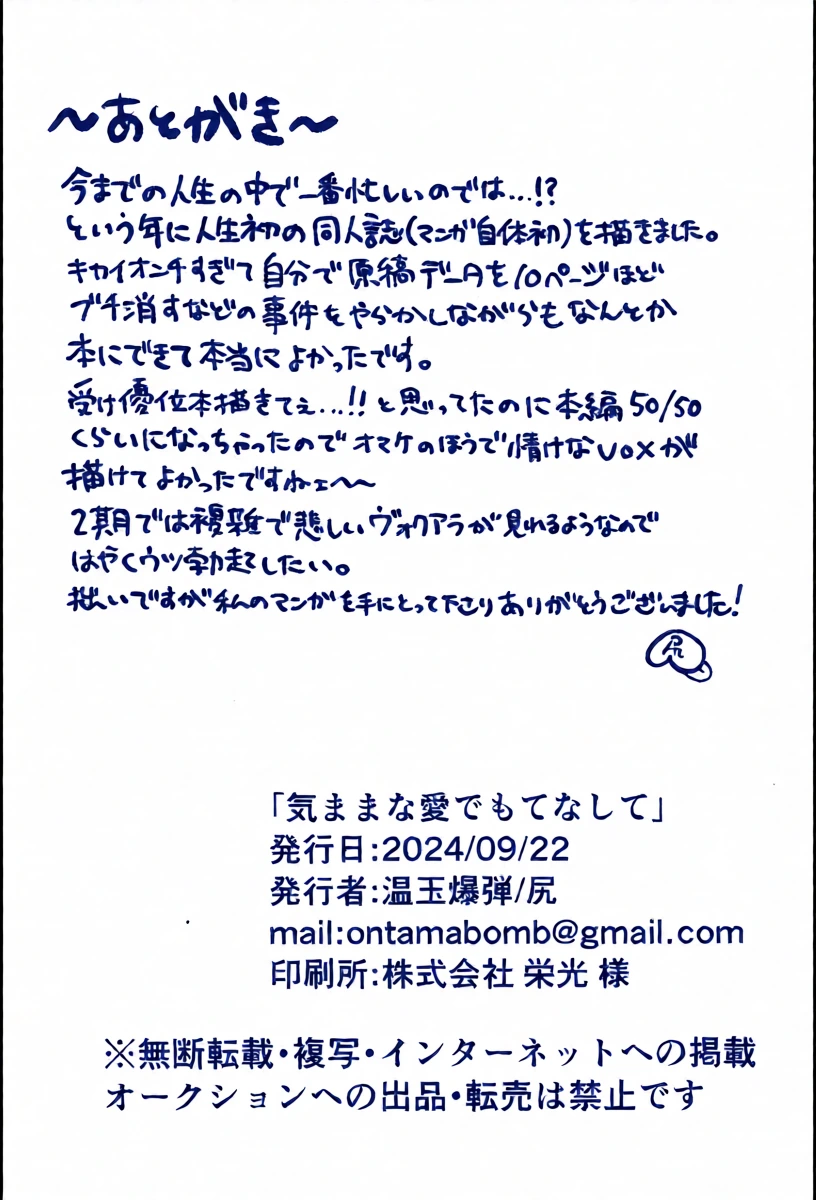 ～あとがき～
今までの人生の中で一番忙しいのでは…!?
という年に人生初の同人誌(マンガ自体初)を描きました。
キカイオンチすぎて自分で原稿データを10ページほど
ブチ消すなどの事件をやらかしながらもなんとか
本にできて本当によかったです。
受け優位本描きてぇ…!!と思ってたのに本編50/50
くらいになっちゃったのでオマケのほうで情けなvoxが
描けてよかったですねェ〜〜
2期では複雑で悲しいヴォクアラが見れるようなので
はやくウツ勃起したい。
拙いですが私のマンガを手にとって下さりありがとうございました!
尻
「気ままな愛でもてなして」
発行日:2024/09/22
発行者:温玉爆弾/尻
mail:ontamabomb@gmail.com
印刷所:株式会社 栄光 様
※無断転載・複写・インターネットへの掲載
オークションへの出品・転売は禁止です